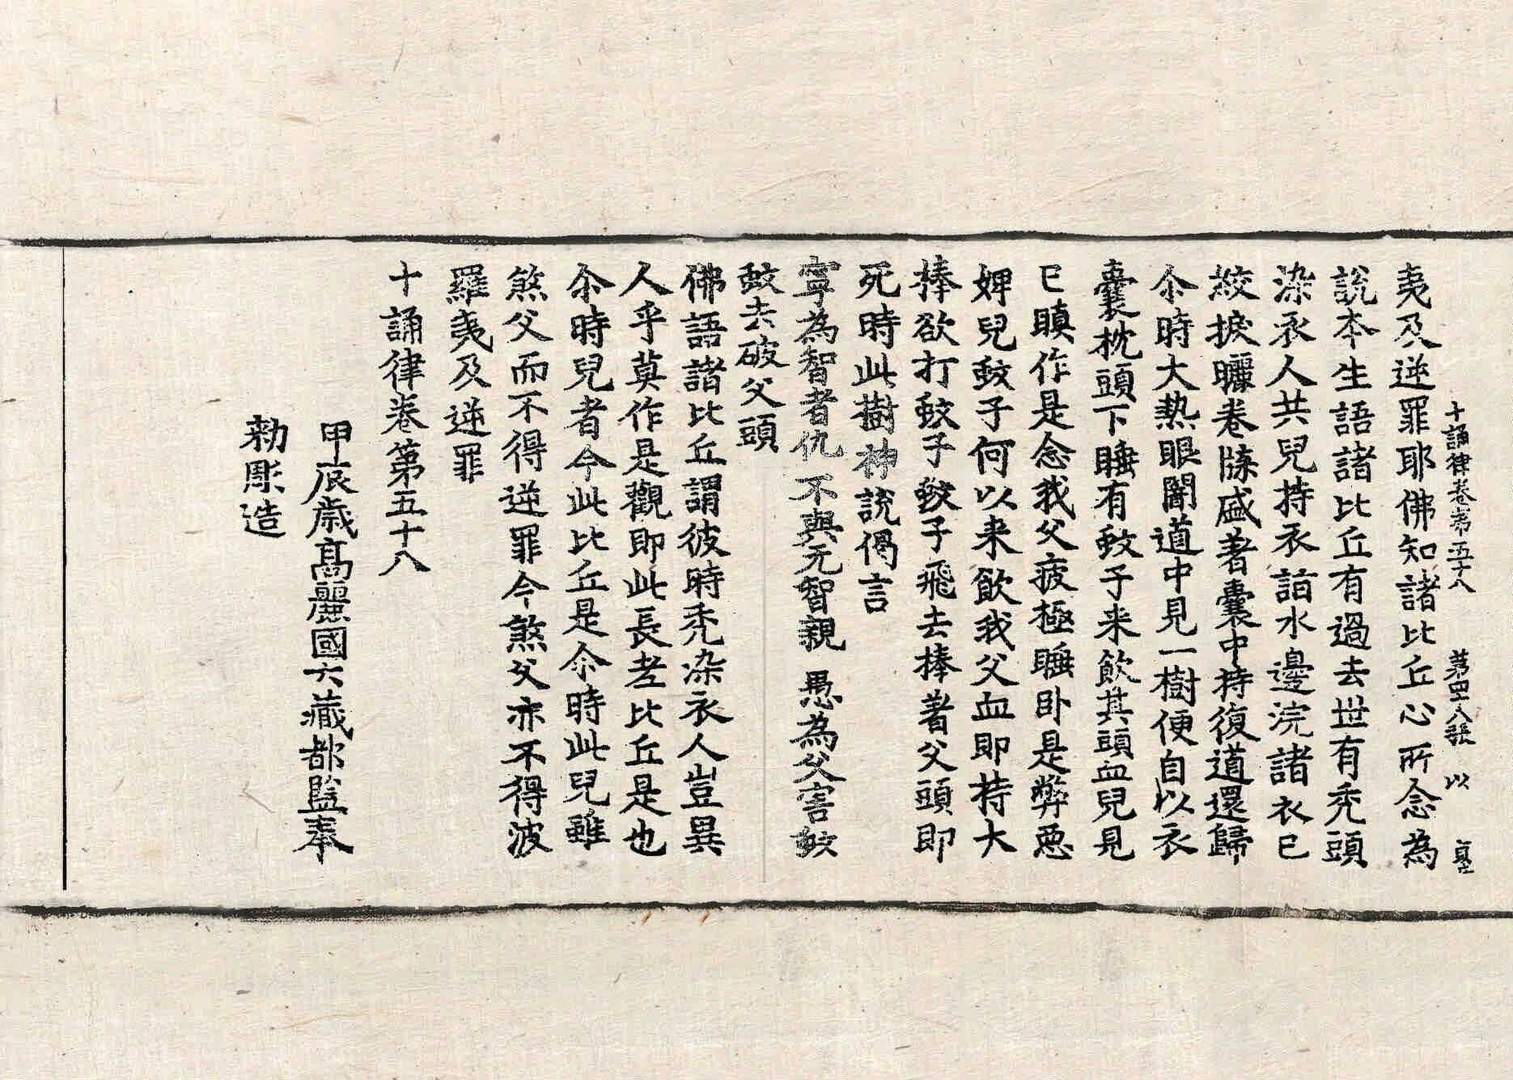 十誦律卷第五十八 第四八張 以
夷及逆罪耶佛知諸比丘心所念為
說本生語諸比丘有過去世有禿頭
染衣人共兒持衣詣水邊浣諸衣已
絞捩曬卷牒盛著囊中持復道還歸
尒時大熱眼闇道中見一樹便自以衣
囊枕頭下睡有蚊子来飲其頭血兒見
已瞋作是念我父疲極睡卧是弊惡
婢兒蚊子何以来飲我父血即持大
棒欲打蚊子蚊子飛去棒著父頭即
死時此樹神說偈言
寧為智者仇 不與无智親 愚為父害蚊
蚊去破父頭
佛語諸比丘謂彼時禿染衣人豈異
人乎莫作是觀即此長老比丘是也
尒時兒者今此比丘是尒時此兒雖
煞父而不得逆罪今煞父亦不得波
羅夷及逆罪
十誦律卷第五十八
甲辰歲高麗國大藏都監奉
勑彫造